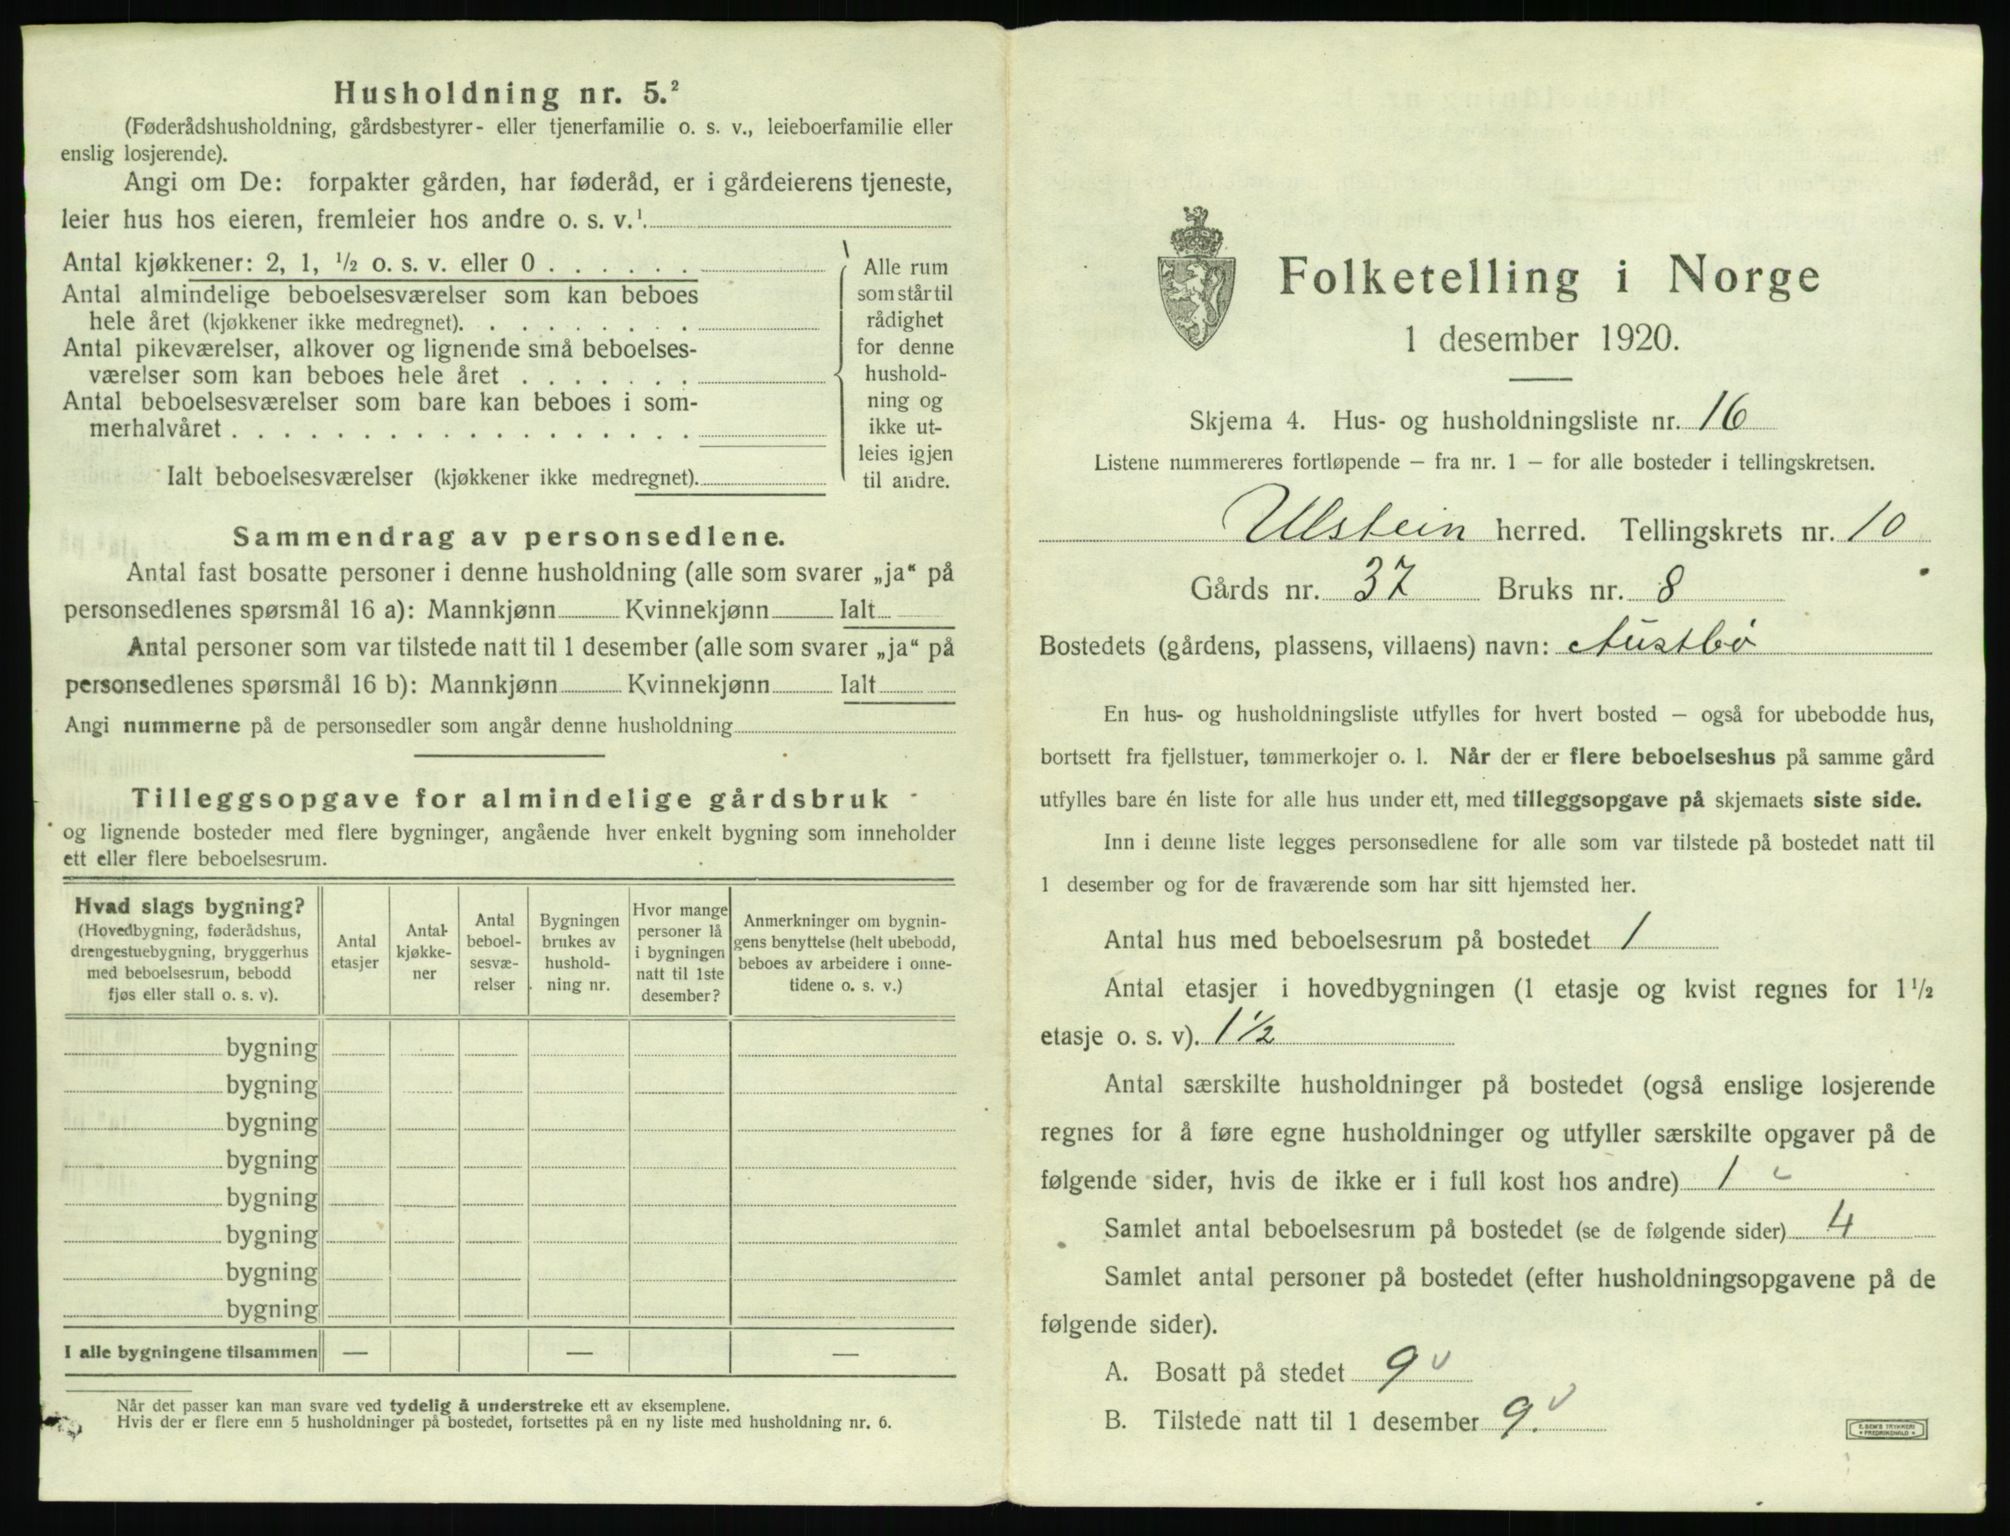 Husholdning nr. 5.²
(Føderådshusholdning, gårdsbestyrer- eller tjenerfamilie o. s. v., leieboerfamilie eller
enslig losjerende).
Angi om De: forpakter gården, har føderåd, er i gårdeierens tjeneste,
leier hus hos eieren, fremleier hos andre o. s. v.¹.
Antal kjøkkener: 2, 1, ½ o. s. v. eller 0 . . . . . .
Antal almindelige beboelsesværelser som kan beboes
hele året (kjøkkener ikke medregnet). . . . . . . . .
Antal pikeværelser, alkover og lignende små beboelses-
værelser som kan beboes hele året . . . . . . .
Antal beboelsesværelser som bare kan beboes i som-
merhalvåret . . . . . . . . . . . . . . . . . .
Ialt beboelsesværelser (kjøkkener ikke medregnet).
Alle rum
som står til
rådighet
for denne
hushold-
ning og
ikke ut-
leies igjen
til andre.
Sammendrag av personsedlene.
Antal fast bosatte personer i denne husholdning (alle som svarer „ja“ på
personsedlenes spørsmål 16 a): Mannkjønn Kvinnekjønn Ialt
Antal personer som var tilstede natt til 1 desember (alle som svarer „ja“ på
personsedlenes spørsmål 16 b): Mannkjønn Kvinnekjønn Ialt
Angi nummerne på de personsedler som angår denne husholdning
Tilleggsopgave for almindelige gårdsbruk
og lignende bosteder med flere bygninger, angående hver enkelt bygning som inneholder
ett eller flere beboelsesrum.
Hvad slags bygning?
(Hovedbygning, føderådshus,
drengestuebygning, bryggerhus
med beboelsesrum, bebodd
fjøs eller stall o. s. v).
Antal
etasjer
Antal
kjøkke-
ner
Antal
beboel-
sesvæ-
relser
Bygningen
brukes av
hushold-
ning nr.
Hvor mange
personer lå
i bygningen
natt til 1ste
desember?
Anmerkninger om bygnin-
gens benyttelse (helt ubebodd,
beboes av arbeidere i onne-
tidene o. s. v.)
bygning
bygning
bygning
bygning
bygning
bygning
bygning
bygning
I alle bygningene tilsammen — — —
Når det passer kan man svare ved tydelig å understreke ett av eksemplene.
Hvis der er flere enn 5 husholdninger på bostedet, fortsettes på en ny liste med husholdning nr. 6.
Folketelling i Norge
1 desember 1920.
Skjema 4. Hus- og husholdningsliste nr. 16
Listene nummereres fortløpende — fra nr. 1 — for alle bosteder i tellingskretsen.
Ulstein herred. Tellingskrets nr. 10
Gårds nr. 37 Bruks nr. 8
Bostedets (gårdens, plassens, villaens) navn: Austbø
En hus- og husholdningsliste utfylles for hvert bosted — også for ubebodde hus,
bortsett fra fjellstuer, tømmerkojer o. l. Når der er flere beboelseshus på samme gård
utfylles bare én liste for alle hus under ett, med tilleggsopgave på skjemaets siste side.
Inn i denne liste legges personsedlene for alle som var tilstede på bostedet natt til
1 desember og for de fraværende som har sitt hjemsted her.
Antal hus med beboelsesrum på bostedet 1
Antal etasjer i hovedbygningen (1 etasje og kvist regnes for 1½
etasje o. s. v). 1½
Antal særskilte husholdninger på bostedet (også enslige losjerende
regnes for å føre egne husholdninger og utfyller særskilte opgaver på de
følgende sider, hvis de ikke er i full kost hos andre) 1
Samlet antal beboelsesrum på bostedet (se de følgende sider) 4
Samlet antal personer på bostedet (efter husholdningsopgavene på de
følgende sider).
A. Bosatt på stedet 9
B. Tilstede natt til 1 desember 9.
E. SEM'S TRYKKERI
FREDRIKSHALD